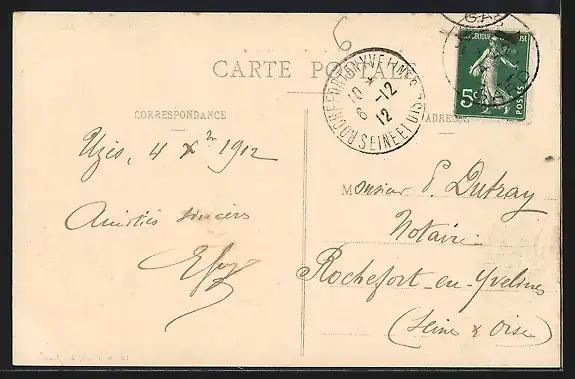 6
CARTE POSTALE
CORRESPONDANCE
ADRESSE
Uzès, 4 Xbre 1912
Amitiés sincères
Monsieur P. Dutray
Notaire
Rochefort-en-Yvelines
(Seine & Oise)
ROCHEFORT-EN-YVELINES
10
6 -12
12
SEINE ET OISE
5c
POSTES
GARD